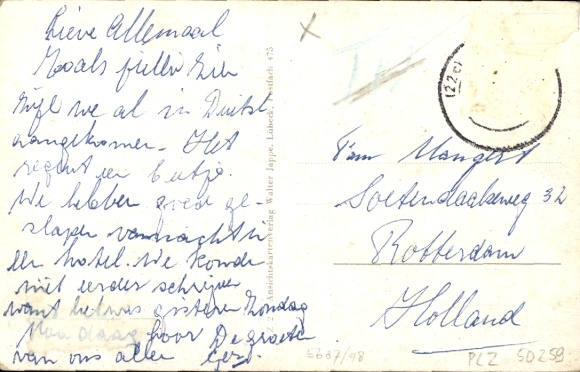 Lieve Allemaal
Zoals jullie zien
zijn we al in Duitsl.
aangekomen. Het
regent een beetje.
We hebben goed ge-
slapen vannacht in
een hotel. We konden
niet eerder schrijven
want het was gisteren Zondag
Maandag hoor De groeten
van ons allen
Ansichtskartenverlag Walter Jappe, Lübeck, Postfach 475
(22c)
Fam
Soetendaalseweg 32
Rotterdam
Holland
5687/98
PLZ 50259